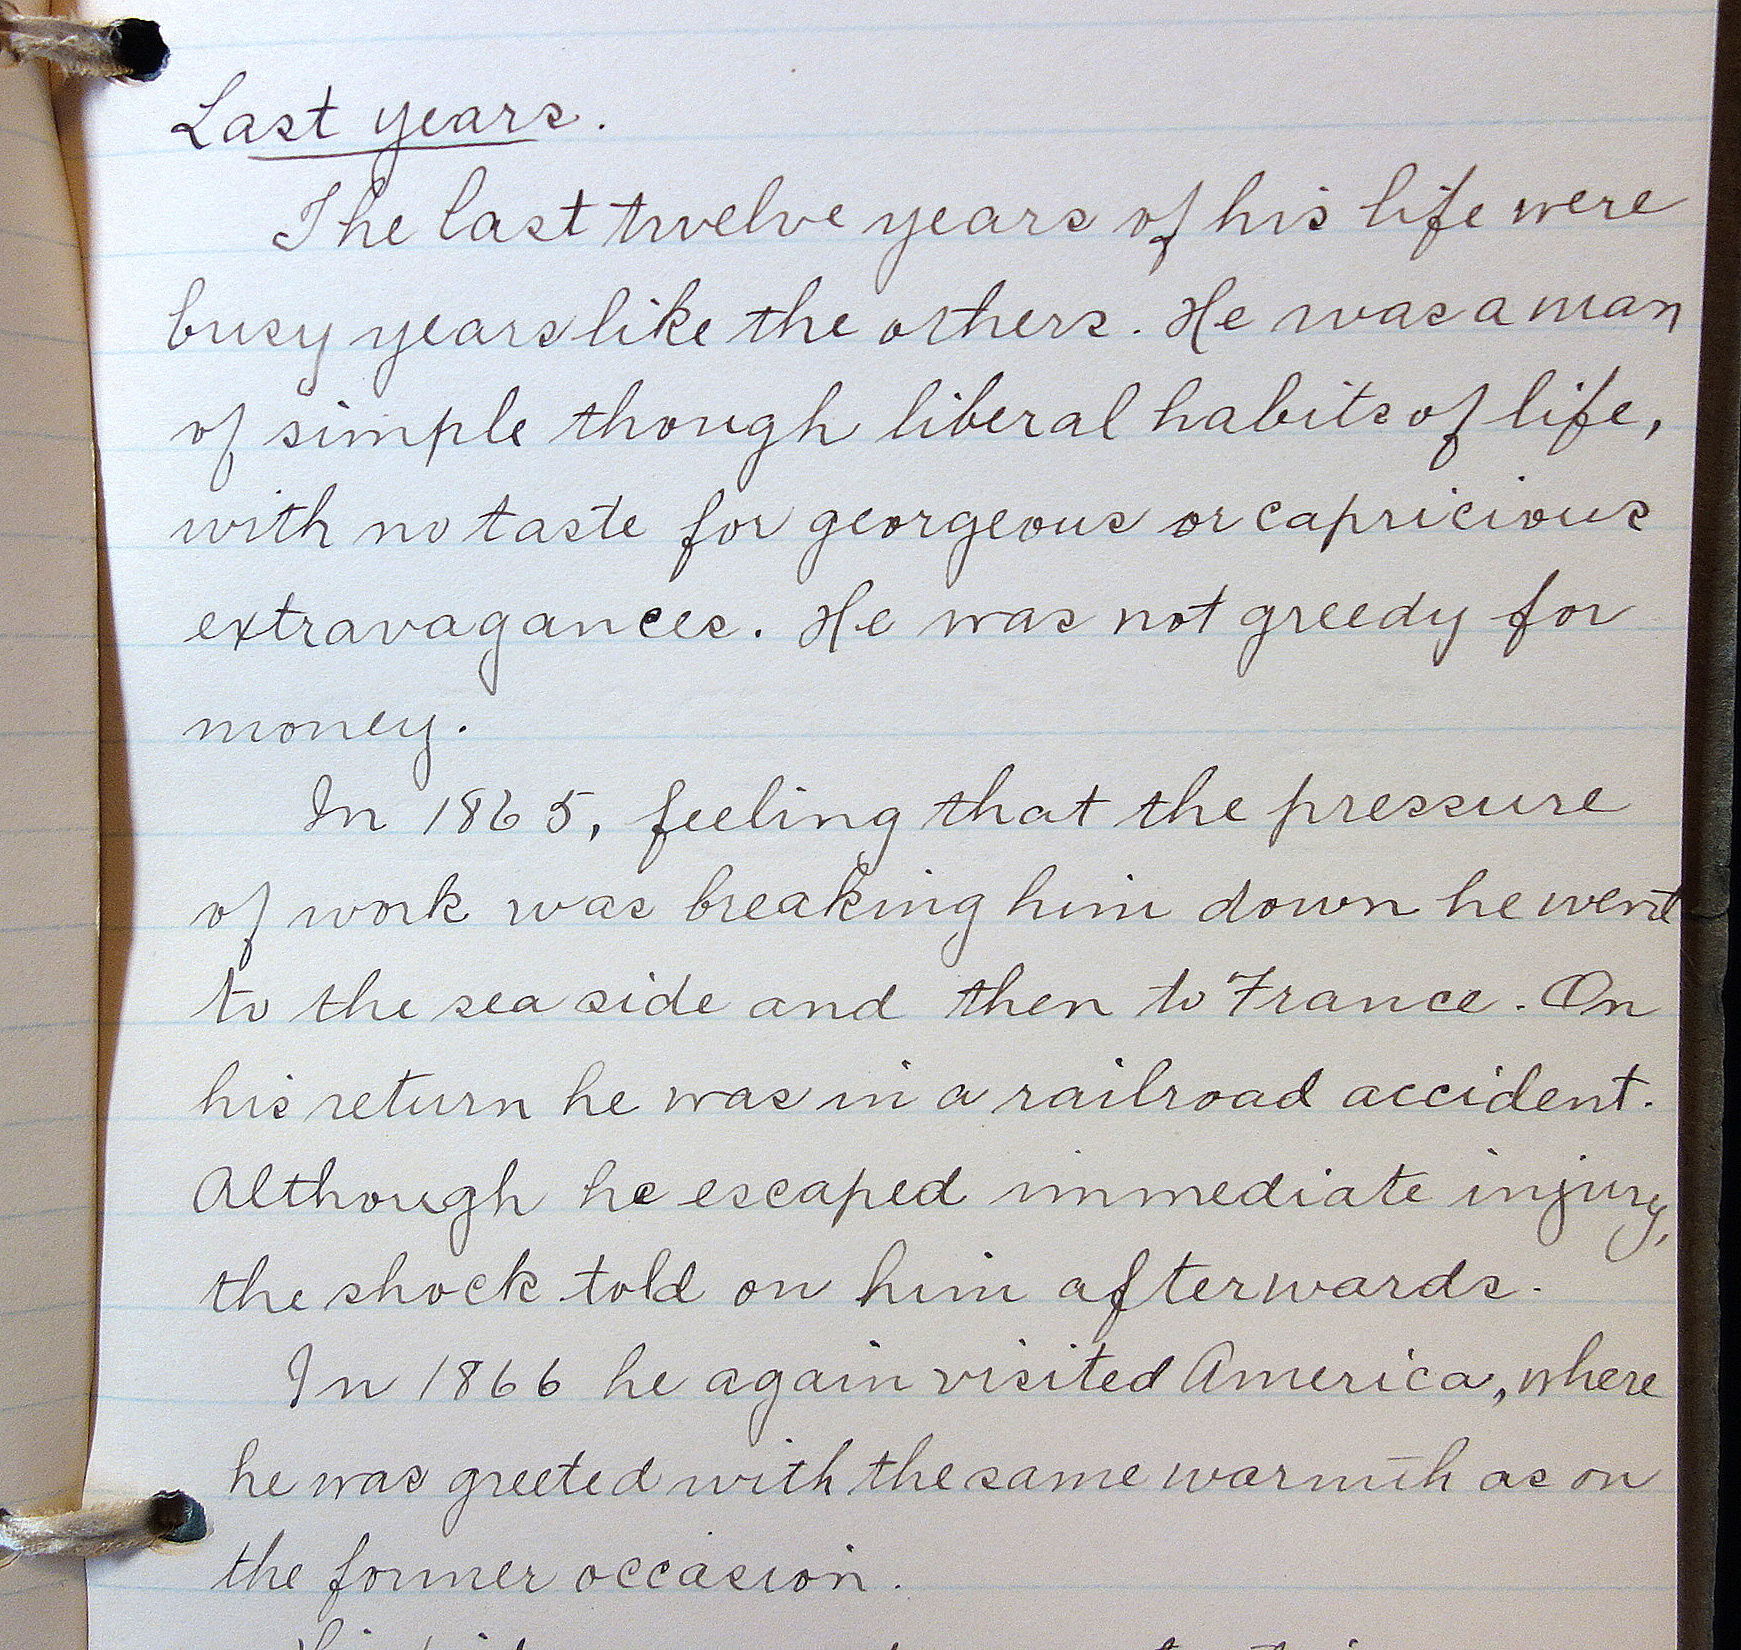 Last years.
The last twelve years of his life were
busy years like the others. He was a man
of simple though liberal habits of life,
with no taste for georgeous or capricious
extravagances. He was not greedy for
money.
In 1865, feeling that the pressure
of work was breaking him down he went
to the sea side and then to France. On
his return he was in a railroad accident.
Although he escaped immediate injury,
the shock told on him afterwards.
In 1866 he again visited America, where
he was greeted with the same warmth as on
the former occasion.